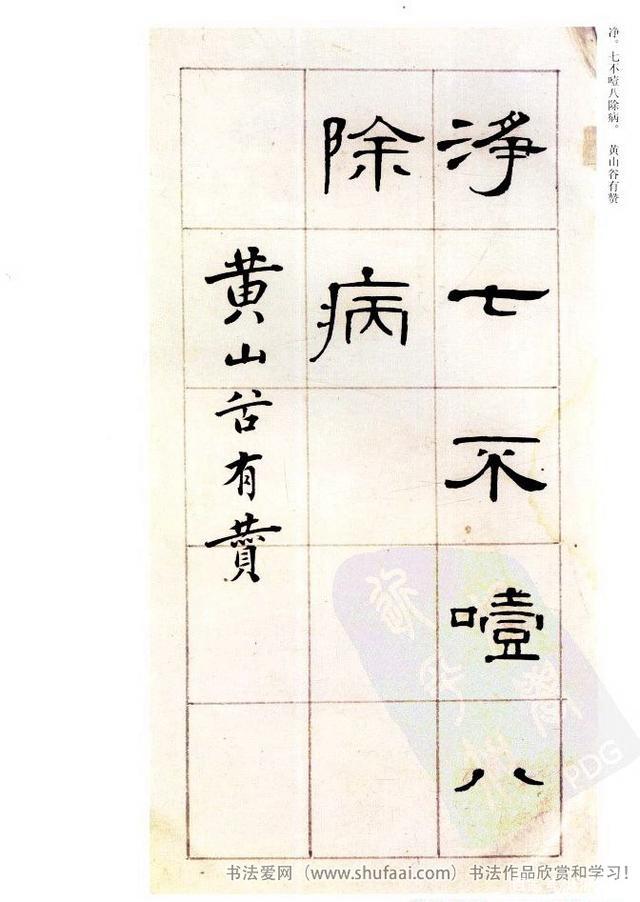 净。七不噎八除病。 黄山谷有赞
淨七不噎八
除病
黄山谷有賛
PDG
书法爱网（www.shufaai.com）书法作品欣赏和学习！